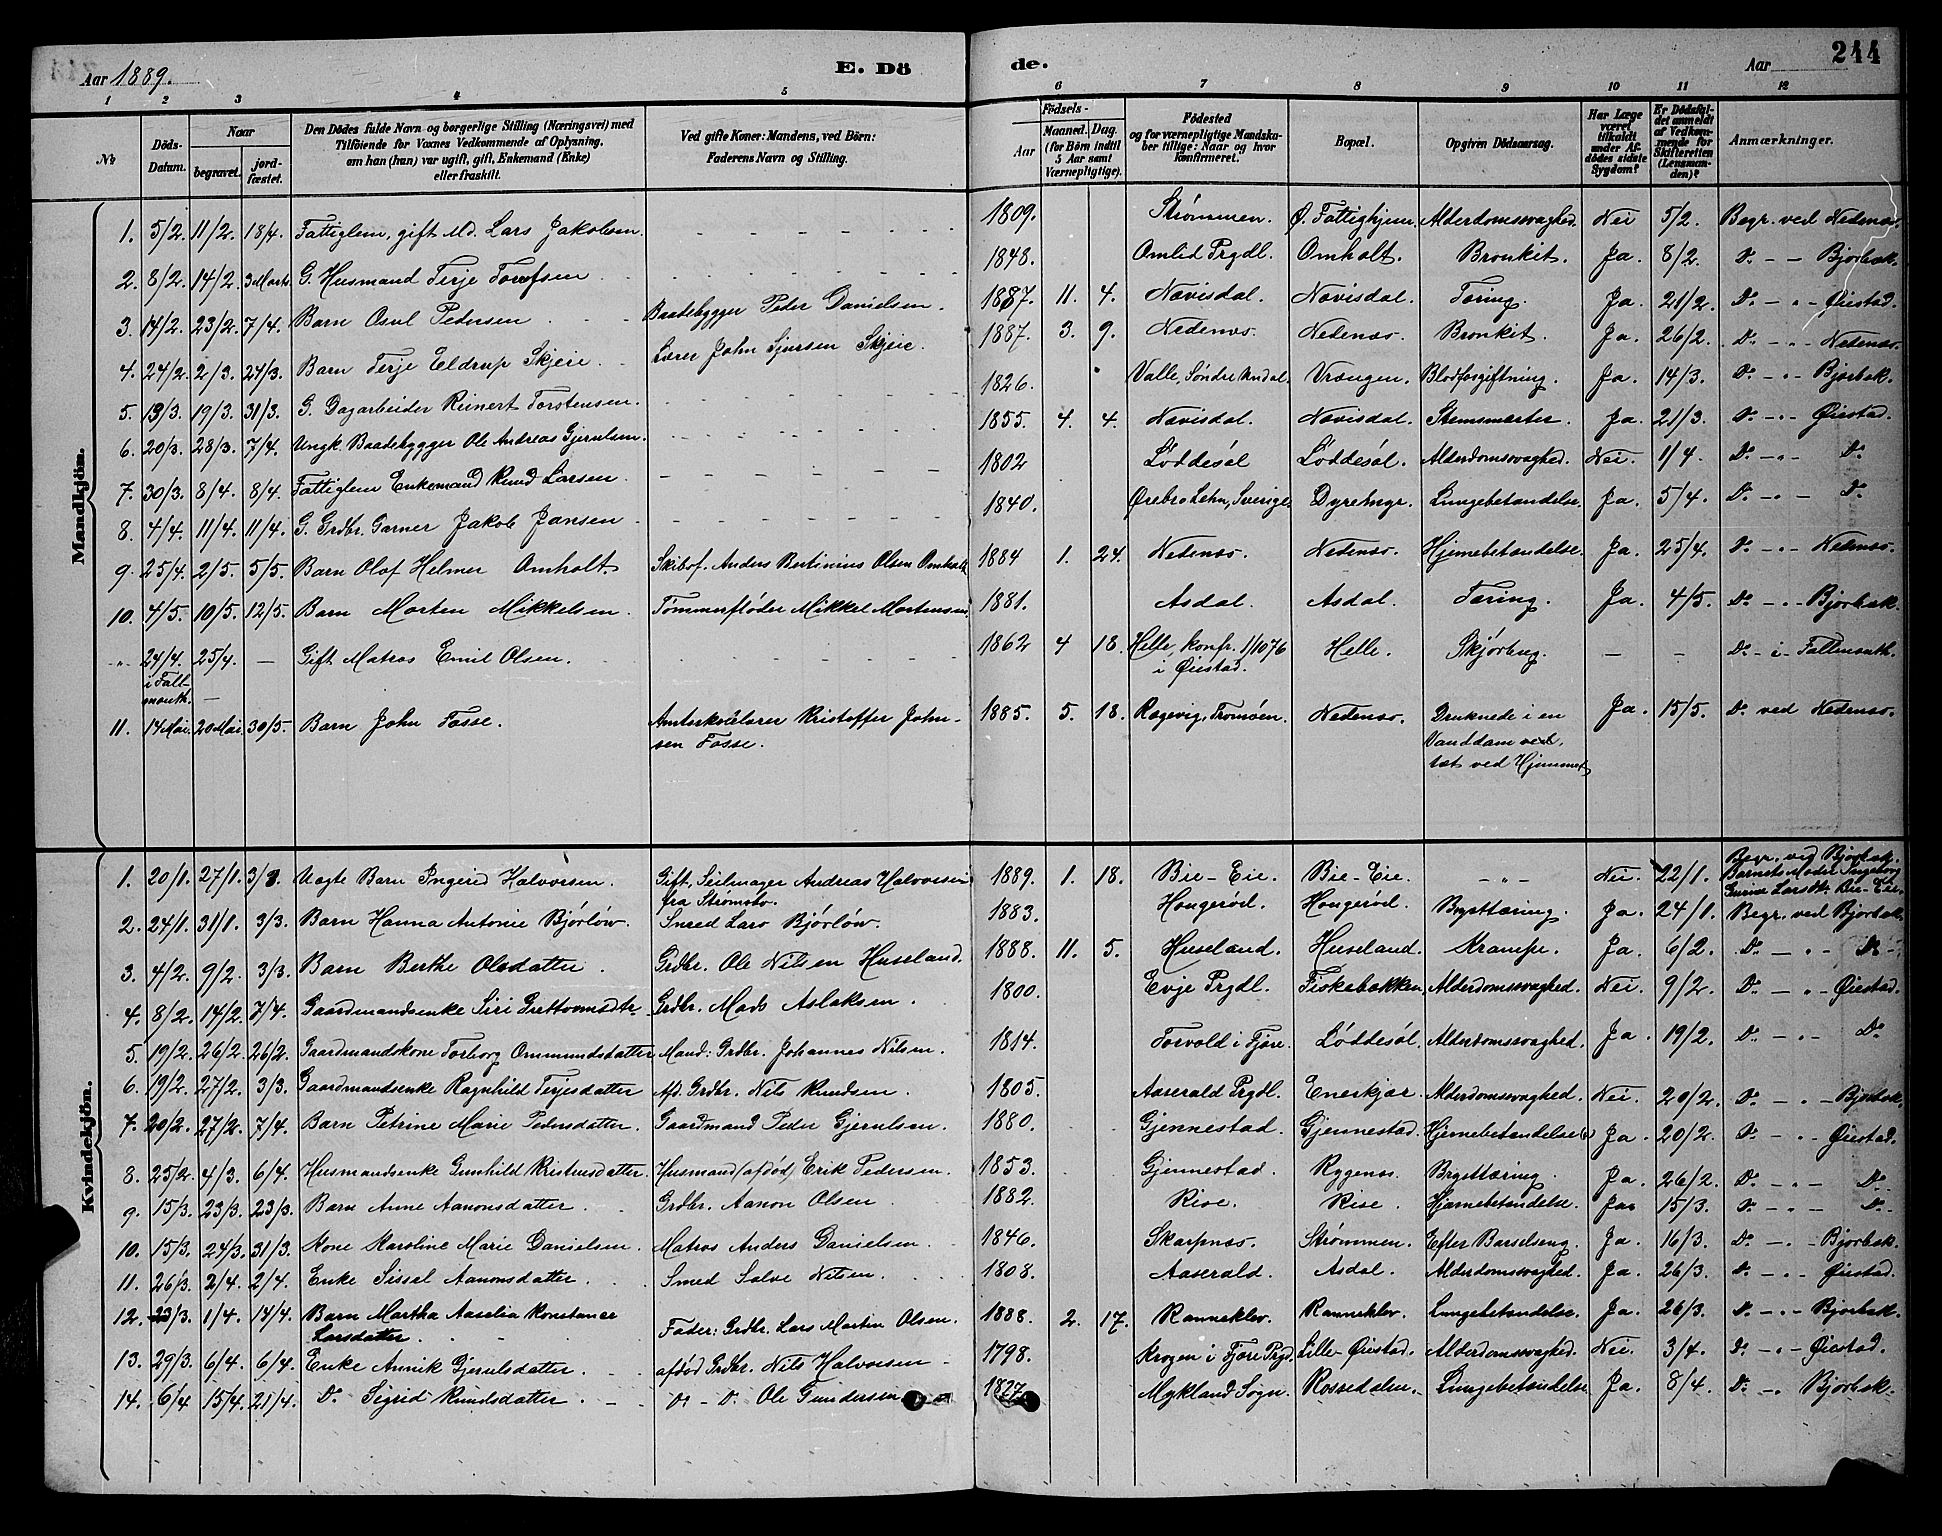 Aar 1889. E. Dö de. Aar 244
1 2 3 4 5 6 7 8 9 10 11 12
No Döds-Datum. Naar begravet. jord-fæstet. Den Dödes fulde Navn og borgerlige Stilling (Næringsvei) med Tilföiende for Voxnes Vedkommende af Oplysning, om han (hun) var ugift, gift, Enkemand (Enke) eller fraskilt. Ved gifte Koner: Mandens, ved Börn: Faderens Navn og Stilling. Födsels- Aar Maaned. Dag. (for Börn indtil 5 Aar samt Værnepligtige). Födested og for værnepligtige Mandska-ber tillige: Naar og hvor konfirmeret. Bopæl. Opgiven Dödsaarsag. Har Læge været tilkaldt under Af-dödes sidste Sygdom? Er Dödsfal-det anmeldt af Vedkom-mende for Skifteretten (Lensman-den)? Anmærkninger.
Mandkjön.
1. 5/2. 11/2. 18/4. Fattiglem, gift Md. Lars Jakobsen. 1809. Strømmen. Ø. Fattighjem Alderdomssvaghed. Nei 5/2. Begr. ved Nedenæs.
2. 8/2. 14/2. 3 Marts G. Husmand Terje Torofsen 1848. Omlid Prgdl. Omholt. Bronkit. Ja. 8/2. Do - - Bjorbæk.
3. 14/2. 23/2. 7/4. Barn Osul Pedersen Baadebygger Peder Danielsen. 1887. 11. 4. Nævisdal. Nævisdal. Tæring. Ja. 21/2. Do - " - Øiestad.
4. 24/2. 2/3. 24/3. Barn Terje Eldrup Skjeie. Lærer John Sjursen Skjeie. 1887. 3. 9. Nedenæs. Nedenæs. Bronkit. Ja. 26/2. Do - " - Nedenæs.
5. 13/3. 19/3. 31/3. G. Dagarbeider Reinert Torstensen. 1826. Valle, Søndre Undal. Vrængen. Blodforgiftning. Ja. 14/3. Do - " - Bjorbæk.
6. 20/3. 28/3. 7/4. Ungk. Baadebygger Ole Andreas Gjerulsen. 1855. 4. 4. Nævisdal. Nævisdal. Stensmerter. Ja. 21/3. Do - " - Øiestad.
7. 30/3. 8/4. 8/4. Fattiglem Enkemand Knud Larsen. 1802 Løddesøl Løddesøl. Alderdomssvaghed. Nei. 1/4. Do - " - Do
8. 4/4. 11/4. 11/4. G. Grdbr. Garver Jakob Jansen 1840. Ørebro Lehn, Sverige. Dyremyr. Lungebetændelse. Ja. 5/4. Do - " - Do
9. 25/4. 2/5. 5/5. Barn Olaf Helmer Omholt. Skibsf. Anders Bertinius Olsen Omholt 1884 1. 24. Nedenæs. Nedenæs. Hjernebetændelse. Ja. 25/4. Do - " - Nedenæs.
10. 4/5. 10/5. 12/5. Barn Morten Mikkelsen. Tømmerfløder Mikkel Mortensen. 1881. Asdal. Asdal. Tæring. Ja. 4/5. Do - " - Bjorbæk.
" 24/4. i Fall-mouth. 25/4. — Gift Matros Emil Olsen. 1862 4 18. Helle, konf. 1/10 76 i Øiestad. Helle. Skjørbug. — — Do - i - Fallmouth.
11. 14 Mai. 20 Mai. 30/5. Barn John Fosse. Amtsskolelærer Kristoffer John-sen Fosse. 1885. 5. 18. Rægevig, Tromøen. Nedenæs. Druknede i en Vanddam tæt ved Hjemmet Ja. 15/5. Do ved Nedenæs.
Kvindekjön.
1. 20/1. 27/1. 3/3. Uægte Barn Ingerid Halvorsen. Gift, Seilmager Andreas Halvorsen fra Strømsbo. 1889. 1. 18. Bie-Eie. Bie-Eie. - " - Nei. 22/1. Begr. ved Bjorbæk. Barnets Moder Ingeborg Larsdt. Bie-Eie.
2. 24/1. 31/1. 3/3. Barn Hanna Antonie Bjørløw. Smed Lars Bjørløw. 1883. Hougerød. Hougerød. Brysttæring. Ja. 24/1. Begr. ved Bjorbæk
3. 4/2. 9/2. 3/3. Barn Berthe Olsdatter. Grdbr. Ole Nilsen Huseland. 1888. 11. 5. Huseland. Huseland. Krampe. Ja. 6/2. Do - " - Do
4. 8/2. 14/2. 7/4. Gaardmandsenke Siri Grettovmsdtr Grdbr. Mads Aslaksen. 1800. Evje Prgdl. Fiskebækken. Alderdomssvaghed. Nei. 9/2. Do - " Øiestad.
5. 19/2. 26/2. 26/2. Gaardmandskone Torborg Ommundsdatter Mand: Grdbr. Johannes Nilsen. 1814. Torvold i Fjære. Løddesøl. Alderdomssvaghed. Ja. 19/2. Do - " - Do
6. 19/2. 27/2. 3/3. Gaardmandsenke Ragnhild Terjesdatter Afd. Grdbr. Nils Knudsen. 1805. Aaserald Prgdl. Enerkjær. Alderdomssvaghed. Nei. 20/2. Do - " - Bjorbæk.
7. 20/2. 27/2. 7/4. Barn Petrine Marie Pedersdatter. Gaardmand Peder Gjerulsen. 1880. Gjennestad. Gjennestad. Hjernebetændelse Ja. 20/2. Do - " Øiestad.
8. 25/2. 4/3. 6/4. Husmandsenke Gunhild Kristensdatter. Husmand (afdød) Erik Pedersen. 1853. Gjennestad. Rygenæs. Brysttæring. Ja. 26/2. Do - " - Do
9. 15/3. 23/3. 23/3. Barn Anne Aanonsdatter. Grdbr. Aanon Olsen 1882. Rise. Rise. Hjernebetændelse. Ja. 15/3. Do - " - Do
10. 15/3. 24/3. 31/3. Kone Karoline Marie Danielsen. Matros Anders Danielsen. 1846. Skarpnæs. Strømmen. Efter Barselseng. Ja. 16/3. Do - " - Bjorbæk.
11. 26/3. 2/4. 2/4. Enke Sissel Aanonsdatter. Smed Salve Nilsen. 1808. Aaserald. Asdal. Alderdomssvaghed. Ja. 26/3. Do - " - Øiestad.
12. 23/3. 1/4. 14/4. Barn Martha Aaselia Konstance Larsdatter. Fader: Grdbr. Lars Martin Olsen. 1888. 2. 17. Ranneklev. Ranneklev. Lungebetændelse. Ja. 26/3. Do - " - Bjorbæk.
13. 29/3. 6/4. 6/4. Enke Annik Gjerulsdatter. afdød Grdbr. Nils Halvorsen 1798. Krogen i Fjære Prgd. Lille-Øiestad. Alderdomssvaghed. Nei. 3/4. Do - " - Øiestad.
14. 6/4 15/4. 21/4. Do Sigrid Knudsdatter. Do - Do Ole Gundersen 1827. Mykland Sogn. Rossedalen. Lungebetændelse Ja. 8/4. Do - " Bjorbæk.